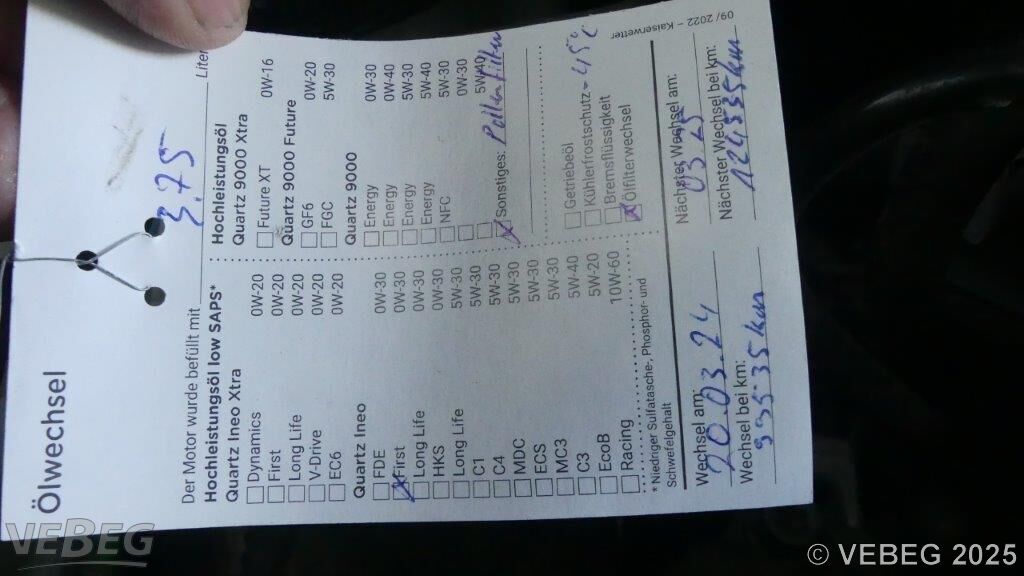 Ölwechsel
Der Motor wurde befüllt mit 3.75 Liter
Hochleistungsöl low SAPS*
Quartz Ineo Xtra
Dynamics 0W-20
First 0W-20
Long Life 0W-20
V-Drive 0W-20
EC6 0W-20
Quartz Ineo
FDE 0W-30
First 0W-30
Long Life 0W-30
HKS 0W-30
Long Life 5W-30
C1 5W-30
C4 5W-30
MDC 5W-30
ECS 5W-30
MC3 5W-30
C3 5W-40
EcoB 5W-20
Racing 10W-60
* Niedriger Sulfatasche-, Phosphor- und
Schwefelgehalt
Hochleistungsöl
Quartz 9000 Xtra
Future XT 0W-16
Quartz 9000 Future
GF6 0W-20
FGC 5W-30
Quartz 9000
Energy 0W-30
Energy 0W-40
Energy 5W-30
Energy 5W-40
NFC 5W-30
0W-30
5W-40
Sonstiges: Pollenfilter
Getriebeöl
Kühlerfrostschutz -45°C
Bremsflüssigkeit
Ölfilterwechsel
Wechsel am: 20.03.24
Wechsel bei km: 99535km
Nächster Wechsel am: 03.25
Nächster Wechsel bei km: 124535km
09/2022 – Kaiserwetter
VEBEG
© VEBEG 2025